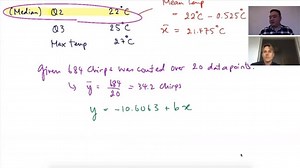 (Median) Q2 22°C
Q3 25°C
Max temp 27°C
Mean temp
= 22°C - 0.525°C
x̄ = 21.475°C
Given 684 Chirps was counted over 20 datapoints.
↳ ȳ = 684/20 = 34.2 Chirps
y = -10.6063 + bx